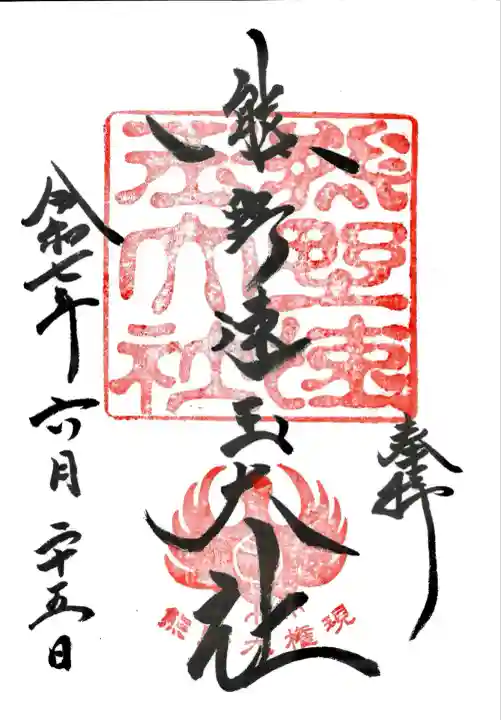 奉拝
熊野速玉大社
令和七年六月二十五日
熊野速玉大社
熊
権現